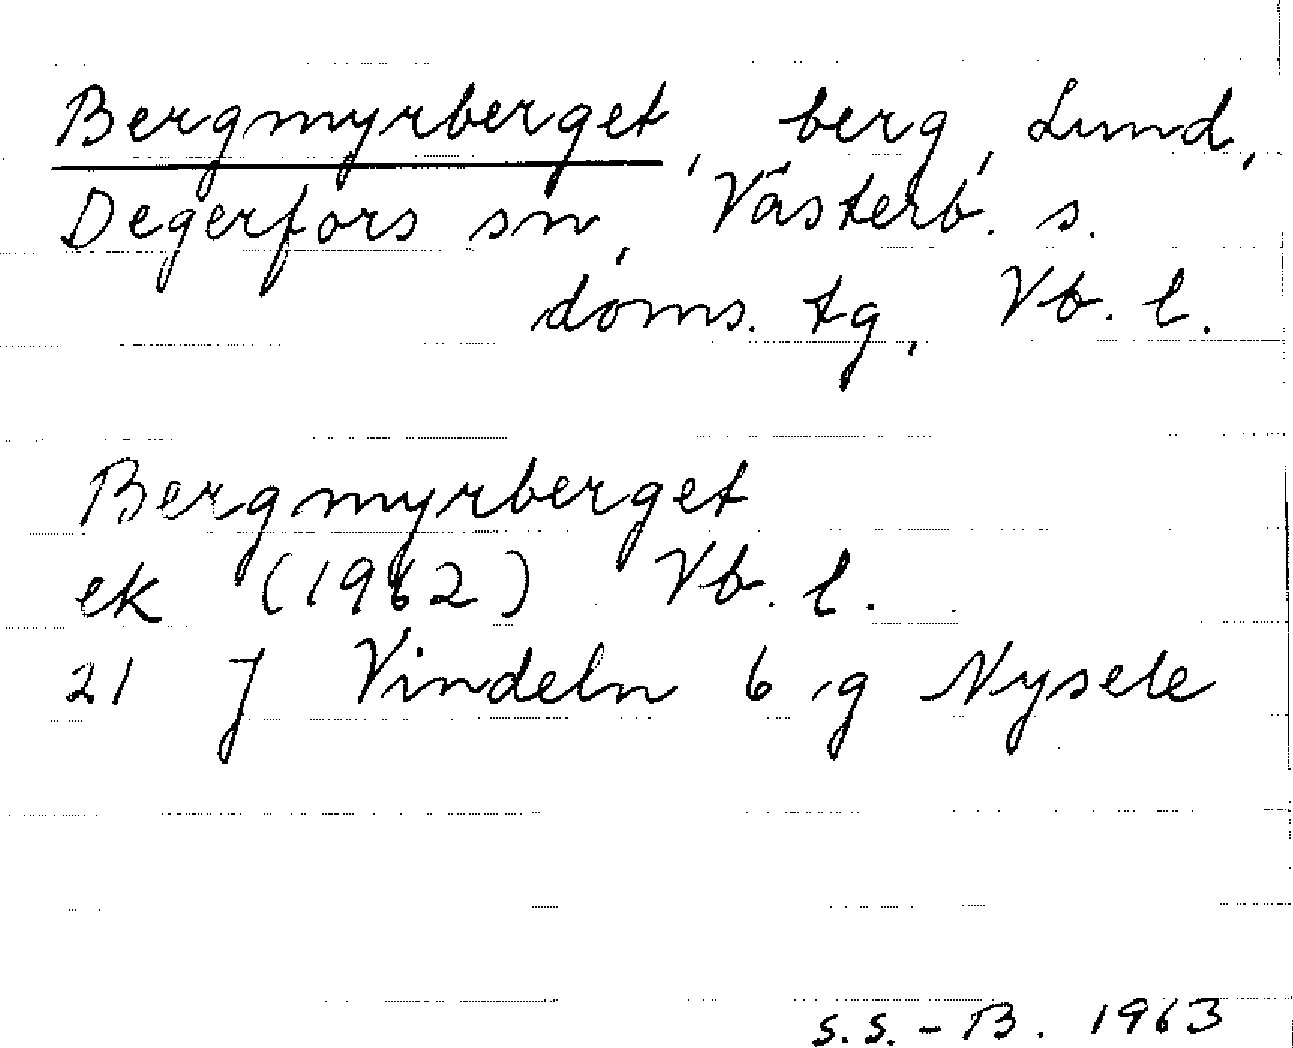 Bergmyrberget, berg, Lund,
Degerfors sn, Västerb. s.
doms. tg, Vb. l.
Bergmyrberget
ek (1962) Vb. l.
21 J Vindeln 6 g Nysele
S.S.-B. 1963